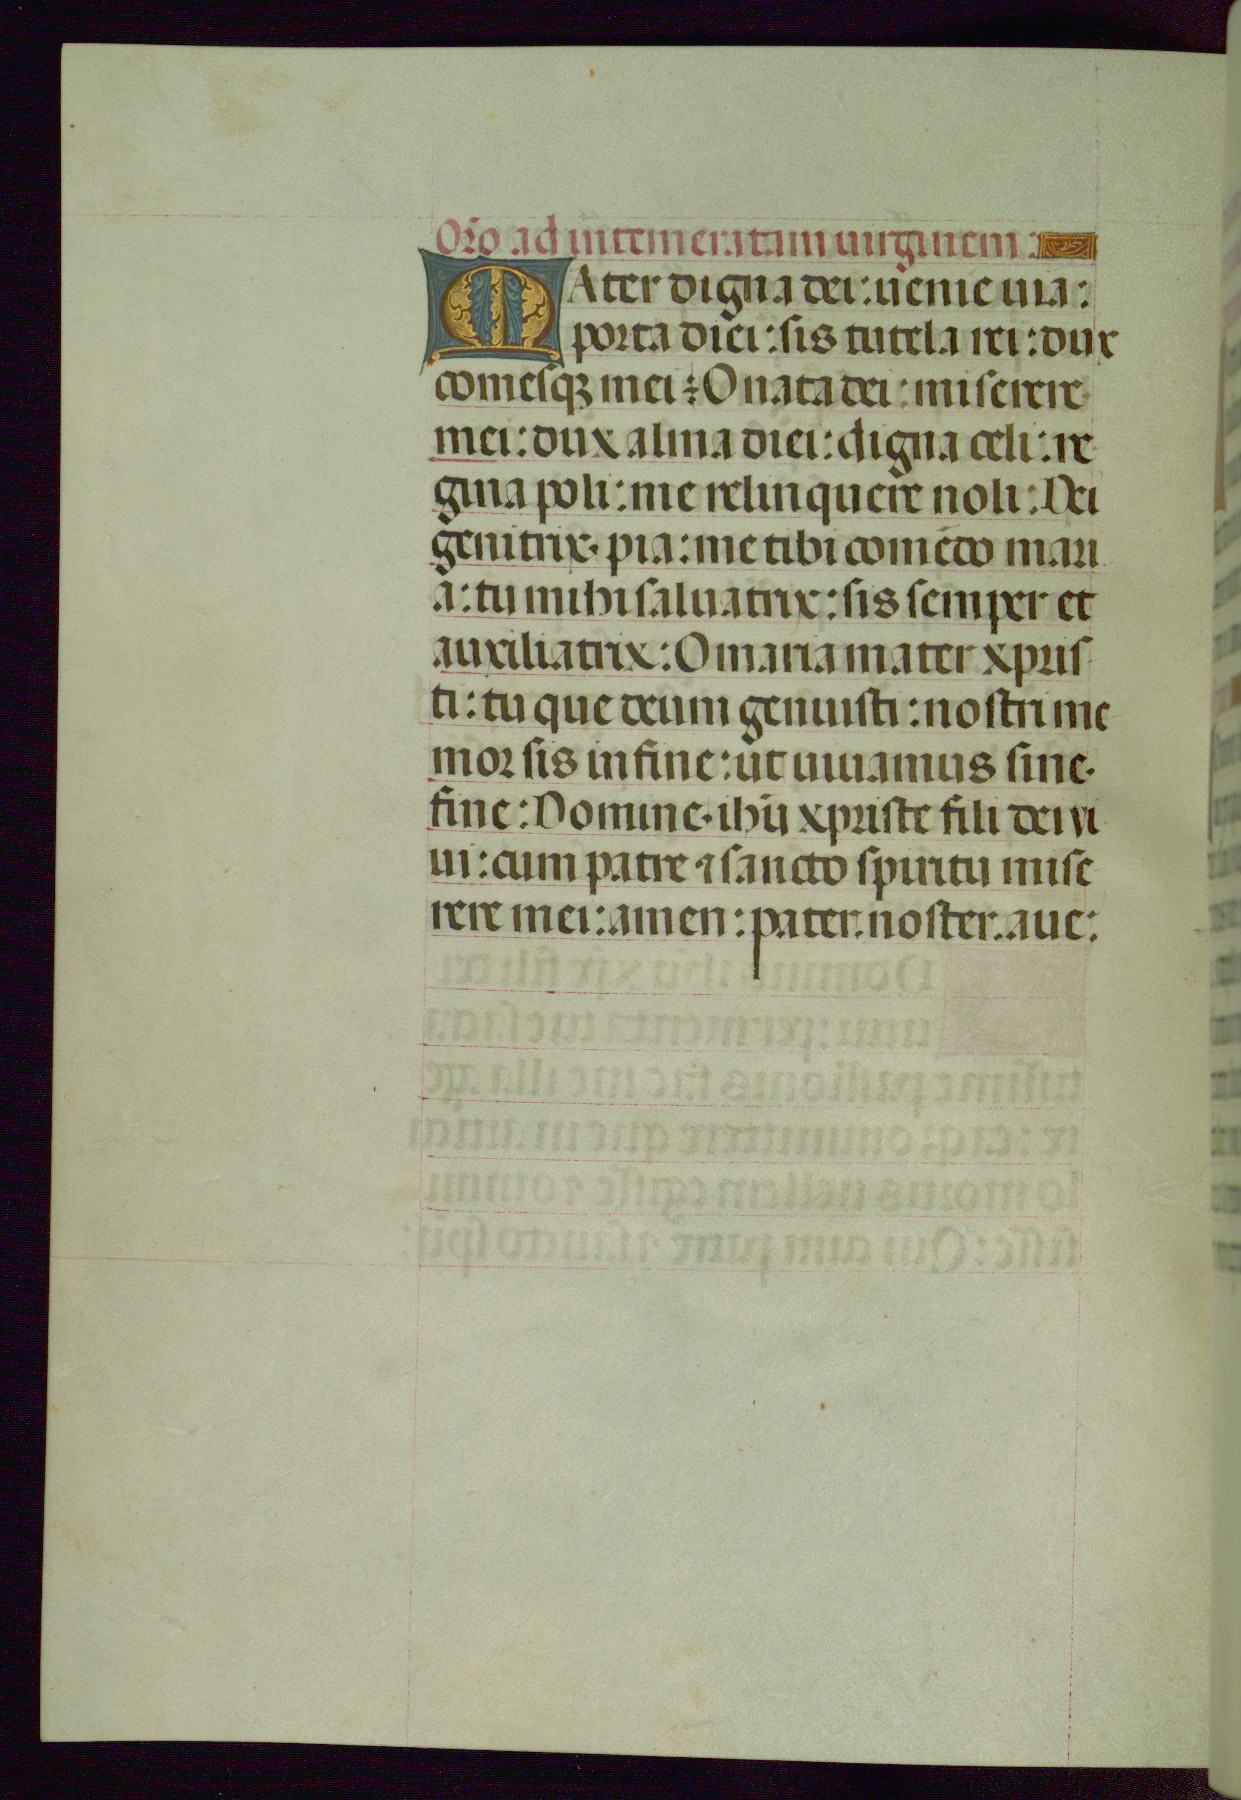 Oro ad intemeratam uirginem:
MAter digna dei: uenie uia:
porta diei: sis tutela rei: dux
comesq; mei: O nata dei: miserere
mei: dux alma diei: digna celi: re
gina poli: me relinquere noli: Dei
genitrix. pia: me tibi comẽdo mari
a: tu mihi saluatrix: sis semper et
auxiliatrix: O maria mater xpris
ti: tu que deum genuisti: nostri me
mor sis in fine: ut uiuamus sine.
fine: Domine. ihũ xpriste fili dei vi
ui: cum patre ⁊ sancto spiritu mise
rere mei: amen: pater. noster. aue: